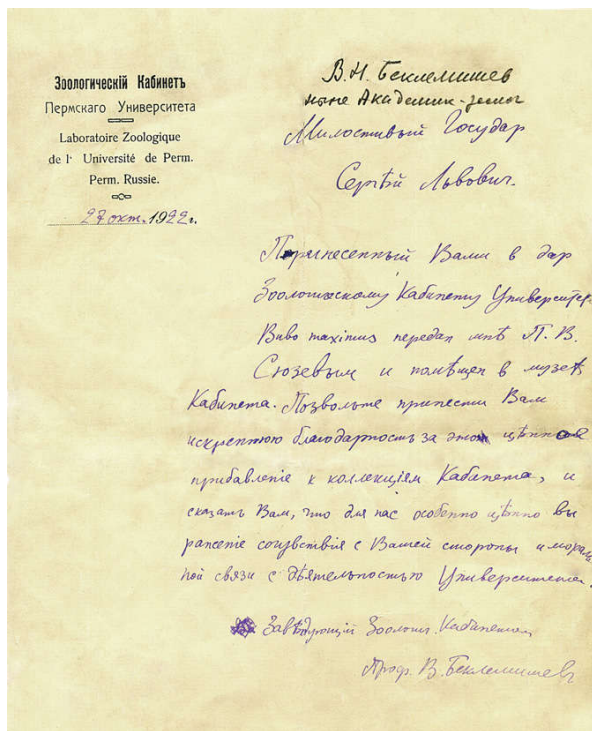 Зоологическій Кабинетъ
Пермскаго Университета
Laboratoire Zoologique
de l' Université de Perm.
Perm. Russie.
27 окт. 1922 г.
В. Н. Беклемишев
ныне Академик-зоолог
Милостивый Государ
Сергѣй Львович.
Принесенный Вами в дар
Зоологическому Кабинету Университета
Bubo maximus передан мнѣ П. В.
Сюзевым и помѣщен в музеѣ
Кабинета. Позвольте принести Вам
искреннюю благодарность за это цѣнное
прибавленіе к коллекціям Кабинета, и
сказать Вам, что для нас особенно цѣнно вы
раженіе сочувствія с Вашей стороны и мораль
ной связи с дѣятельностью Университета.
Завѣдующій Зоологич. Кабинетом
Проф. В. Беклемишевъ